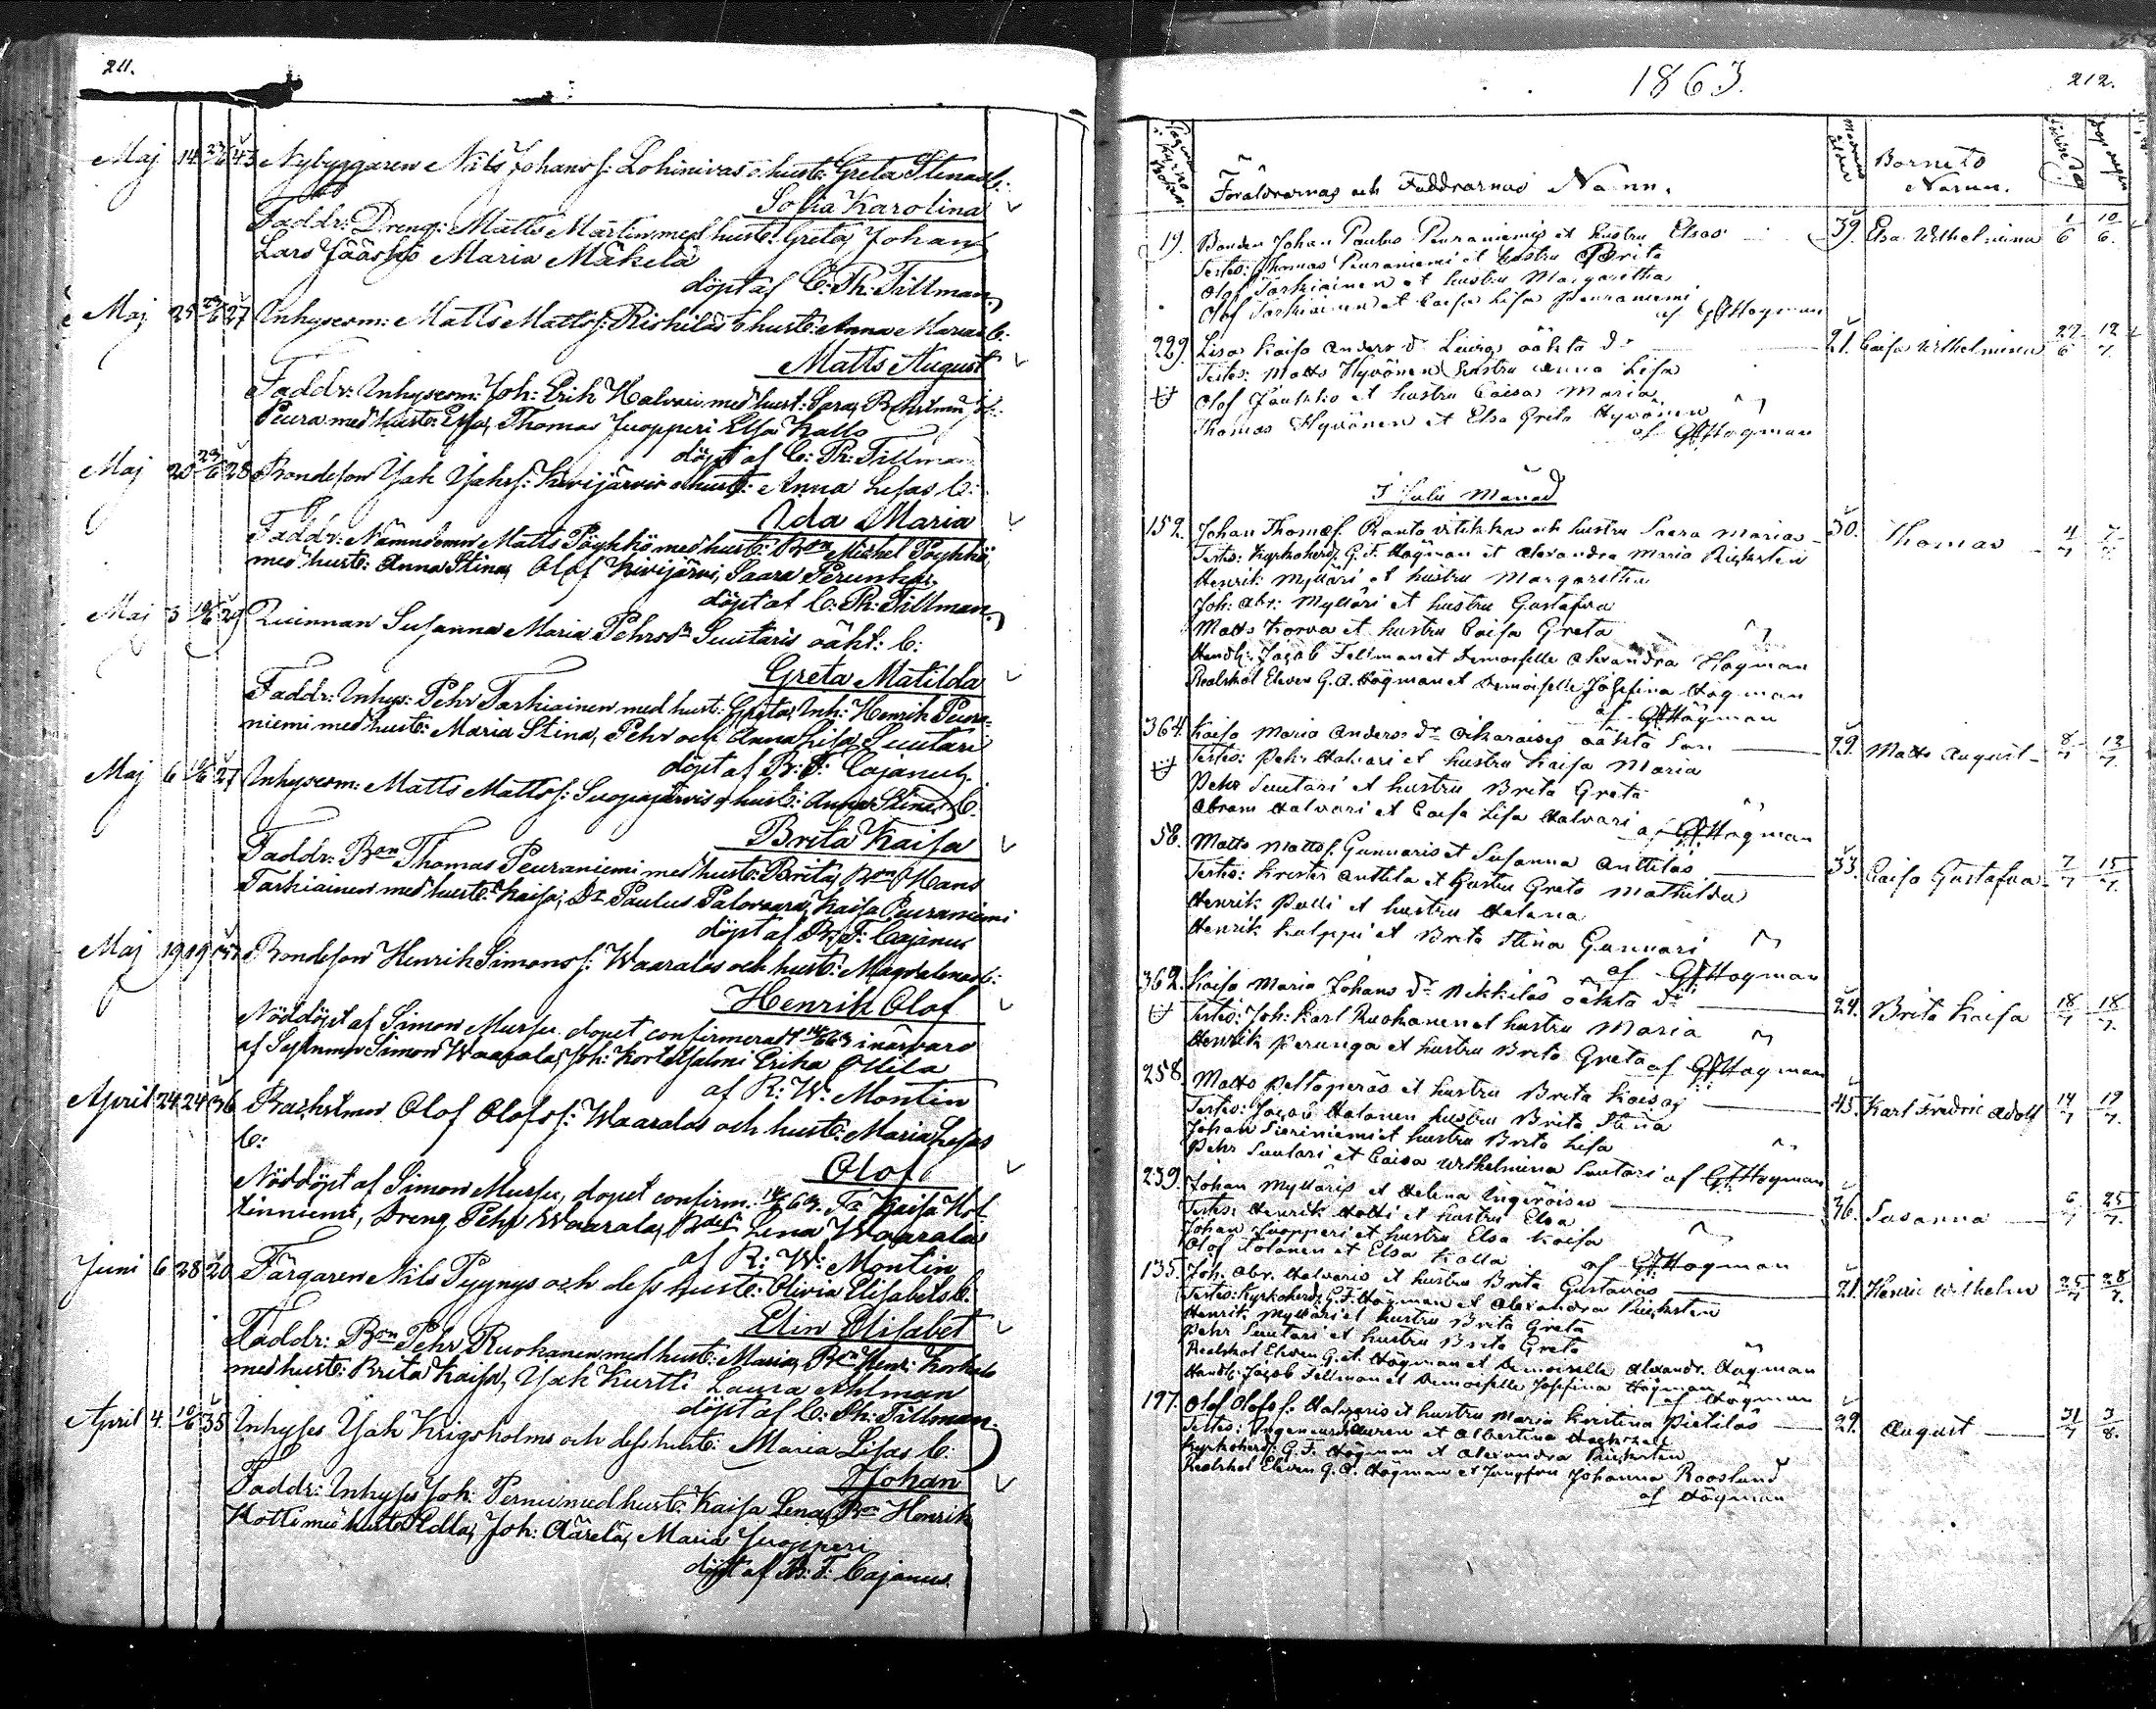 211.
Maj 14 23/6 43 Nybyggaren Nils Johans s: Lohinivas o hust: Greta Stinas b:
Sofia Karolina
Faddr: Dreng: Matts Martin med hust: Greta, Johan
Lars Jääskö Maria Mäkelä
döpt af C: Th: Tillman
Maj 25 23/6 27 Inhysesm: Matts Matts s: Riskiläs o hust: Anna Marias b:
Matts August
Faddr: Inhysesm: Joh: Erik Halvari med hust: Sara,
Peura med hust: Elsa, Thomas Juopperi Elsa Kallo
döpt af C: Th: Tillman
Maj 20 23/6 28 Bondeson Isak Isaks s: Kivijärvis o hust: Anna Lisas b:
Ida Maria
Faddr: Nämndeman Matts Pöyhkö med hust: Bon Michel Pöyhkö,
med hust: Anna Stina, Olof Kivijärvi, Saara Perunka,
döpt af C: Th: Tillman
Maj 3 10/6 29 Qvinnan Susanna Maria Pehrs dr Suutaris oäkt: b:
Greta Matilda
Faddr: Inhys: Pehr Tarkiainen med hust: Greta, Inh: Henrik Peura-
niemi med hust: Maria Stina, Pehr och Anna Lisa Suutari
döpt af B: F: Cajanus
Maj 6 10/6 27 Inhysesm: Matts Matts s: Suopajärvis o hust: Anna Stinas b:
Brita Kaisa
Faddr: Bon Thomas Peuraniemi med hust: Brita, Bon Hans
Tarkiainen med hust: Kaisa, Dr Paulus Palovaara, Kaisa Peuraniemi
döpt af B: F: Cajanus
Maj 19 19 Bondeson Henrik Simons s: Waaralas och hust: Magdalenas b:
Henrik Olof
Nöddöpt af Simon Mursu, dopet confirmeradt 14/6 63 i närvaro
af Simon Waarala, Joh: Kortelsalmi Erika Ollila
af R: W: Montin
April 24 24 36 Backstmn Olof Olofs s: Waaralas och hust: Maria Lisas
b:
Olof
Nöddöpt af Simon Mursu, dopet confirm. 14/6 63. Kaisa Kot-
tinniemi, Dreng Pehr Waarala, Lena Waarala
af R: W: Montin
Juni 6 28 20 Färgaren Nils Pyynys och dess hust: Olivia Elisabets b:
Elin Elisabet
Faddr: Bon Pehr Ruokanen med hust: Maria, Bon Henr: Korkala
med hust: Brita Kaisa, Isak Kurtti Laura Ahlman
döpt af C: Th: Tillman
April 4 10/6 35 Inhyses Isak Krigsholms och dess hust: Maria Lisas b:
Johan
Faddr: Inhyses Joh: Pernu med hust: Kaisa Lena, Bon Henrik
Kotti med hust: Ulla, Joh: Aärelä, Maria Juopperi
döpt af B: F: Cajanus.
1863.
212.
Föräldrarnas och Faddrarnas Namn.
Barnets
Namn.
19. Bonden Johan Paulus Peuraniemis et hustru Elsas 39. Elsa Wilhelmina 1/6 10/6.
Testes: Thomas Peuraniemi et hustru Brita
Olof Tarkiainen et hustru Margaretha
Olof Tarkiainen et Caisa Lisa Peuraniemi
af GFHögman
229. Lisa Kaisa Anders dr Leivigs oäkta dr 21. Caisa Wilhelmina 27/6 12/7
Testes: Matts Hyvönen hustru Anna Lisa
Olof Jauhko et hustru Caisa Maria
Thomas Hyvönen et Elsa Greta Hyvönen
af GFHögman
I Julii Månad
152. Johan Thomas s. Rautavitikka och hustru Saara Marias 30. Thomas 4/7
Testes: Kyrkoherd. G. F. Högman et Alexandra Maria
Henrik Myllöri et hustru Margaretha
Joh: Abr: Myllöri et hustru Gustafva
Matts Korva et hustru Caisa Greta
Handl: Jacob Fellman et Demoiselle Alexandra Högman
Realskol Eleven G. A. Högman et Demoiselle Josefina Högman
af GFHögman
364. Kaisa Maria Anders dr Oikaraises oäkta Son 29. Matts August 8/7 12/7.
Testes: Pehr Halvari et hustru Kaisa Maria
Pehr Suutari et hustru Brita Greta
Abram Halvari et Caisa Lisa Halvari
af GFHögman
58. Matts Matts s. Gunnaris et Susanna Anttilas 33. Caisa Gustafva 7/7 15/7.
Testes: Krister Anttila et hustru Greta Mathilda
Henrik Palli et hustru Helena
Henrik Kulppi et Brita Stina Gunnari
af GFHögman
362. Kaisa Maria Johans dr Nikkiläs oäkta dr 24. Brita Kaisa 18/7 18/7.
Testes: Joh: Karl Ruokanen et hustru Maria
Henrik Perunga et hustru Brita Greta af GFHögman
258. Matts Peltoperäs et hustru Brita Kaisas 45. Karl Fredric Adolf 14/7 19/7.
Testes: Jacob Halonen hustru Brita Stina
Johan Sieriniemi et hustru Brita Lisa
Pehr Suutari et Caisa Wilhelmina Suutari af GFHögman
239. Johan Myllöris et Helena Ingeröises 36. Susanna 6/7 25/7.
Testes: Henrik Hotti et hustru Elsa
Johan Juopperi et hustru Elsa Kaisa
Olof Tolonen et Elsa Kalla
af GFHögman
135. Joh. Abr. Halvaris et hustru Brita Gustavas 21. Henric Wilhelm 25/7 28/7.
Testes: Kyrkoherd. G. F. Högman et Alexandra
Henrik Myllöri et hustru Brita Greta
Pehr Suutari et hustru Brita Greta
Realskol Eleven G. A. Högman et Demoiselle Alexandr. Högman
Handl: Jacob Fellman et Demoiselle Josefina Högman
af Högman
197. Olof Olofs s. Halvaris et hustru Maria Kristina Pietiläs 29. August 31/7 3/8.
Testes: Ingenieur Auren et Albertina
Kyrkoherd. G. F. Högman et Alexandra
Realskol Eleven G. A. Högman et Jungfru Johanna Rooslund
af Högman